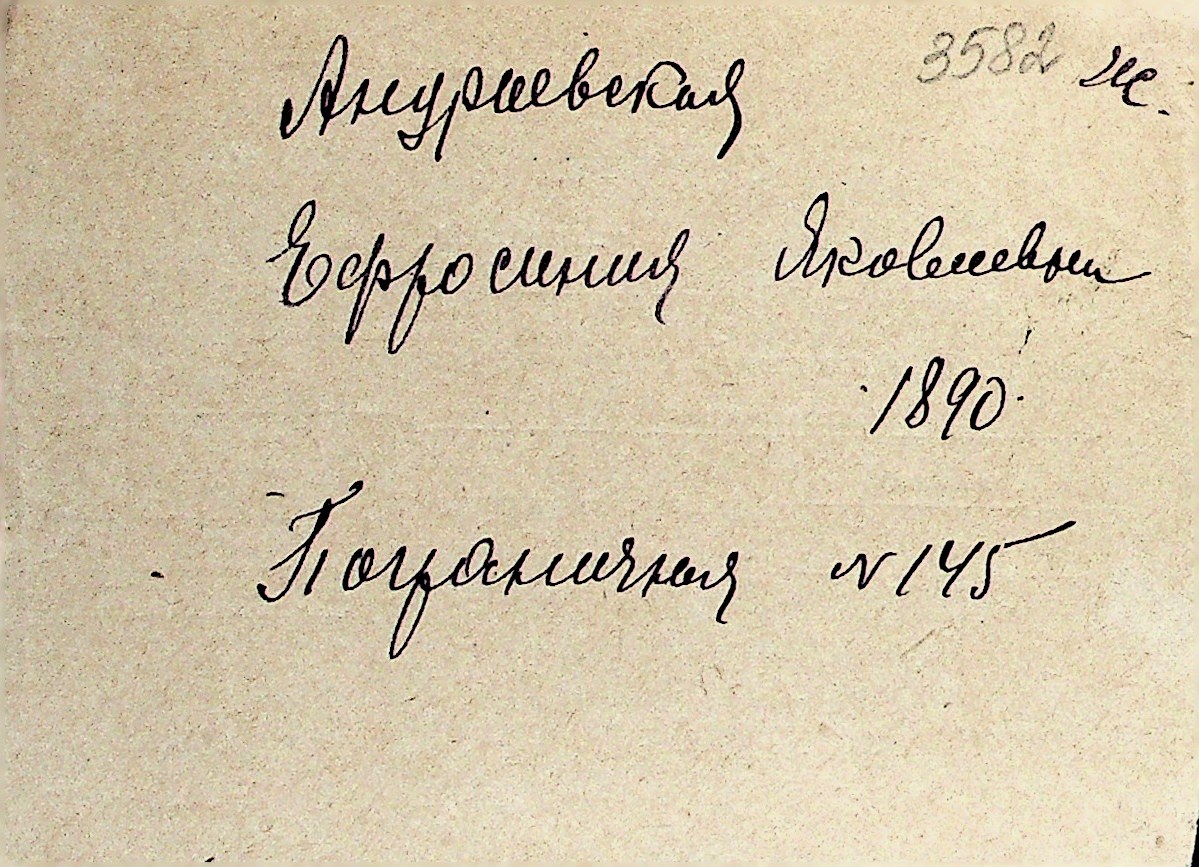 3582 ж.
Андриевская
Ефросиния Яковлевна
1890
Пограничная N 145